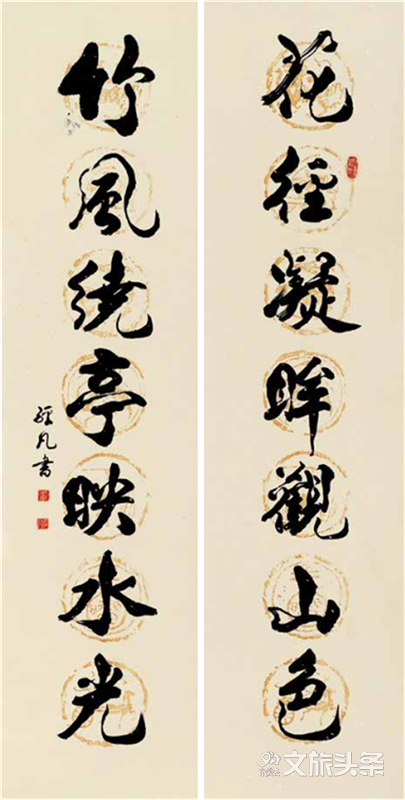 花徑凝眸觀山色
竹風繞亭映水光
經凡書
文旅头条